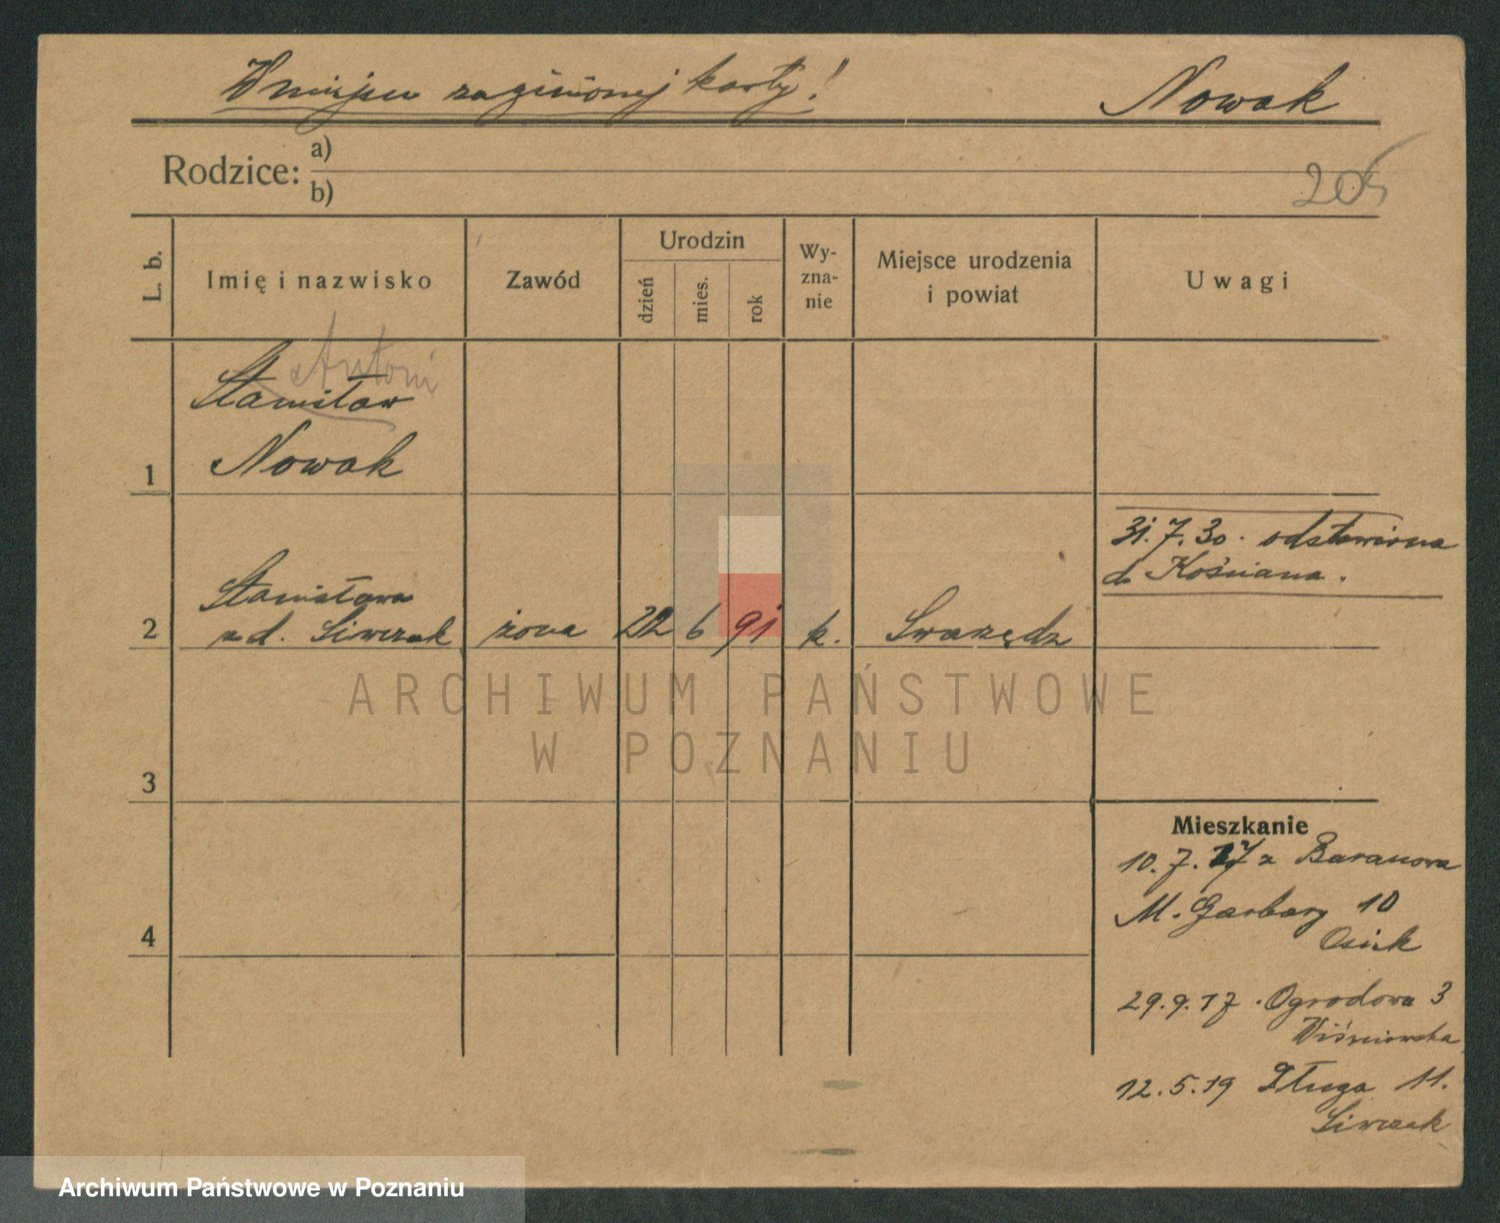 W miejscu zaginionej karty!
Nowak
Rodzice: a)
b)
205
L. b.
Imię i nazwisko
Zawód
Urodzin
dzień
mies.
rok
Wy-
zna-
nie
Miejsce urodzenia
i powiat
Uwagi
Antoni
Stanisław
Nowak
1
31.7.30. odstawiona
do Kościana.
Stanisława
2 z d. Siwczak żona 22 6 91 k. Swarzędz
ARCHIWUM PAŃSTWOWE
W POZNANIU
3
Mieszkanie
10.7.17 z Baranowa
M. Garbary 10
Osiek
4
29.9.17. Ogrodowa 3
Wiśniewska
12.5.19 Długa 11.
Siwczak
Archiwum Państwowe w Poznaniu